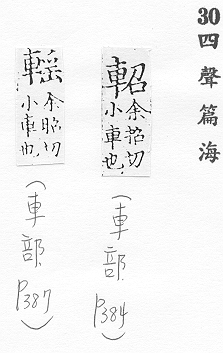 30四聲篇海
軺余招切
小車也
(車部P384)
余昭切
小車也
(車部P387)